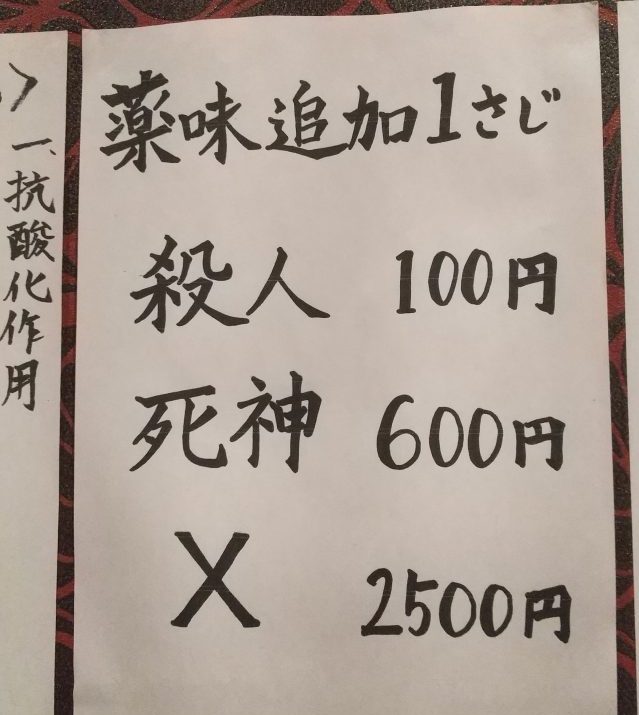 薬味追加1さじ
殺人 100円
死神 600円
X 2500円
一、抗酸化作用